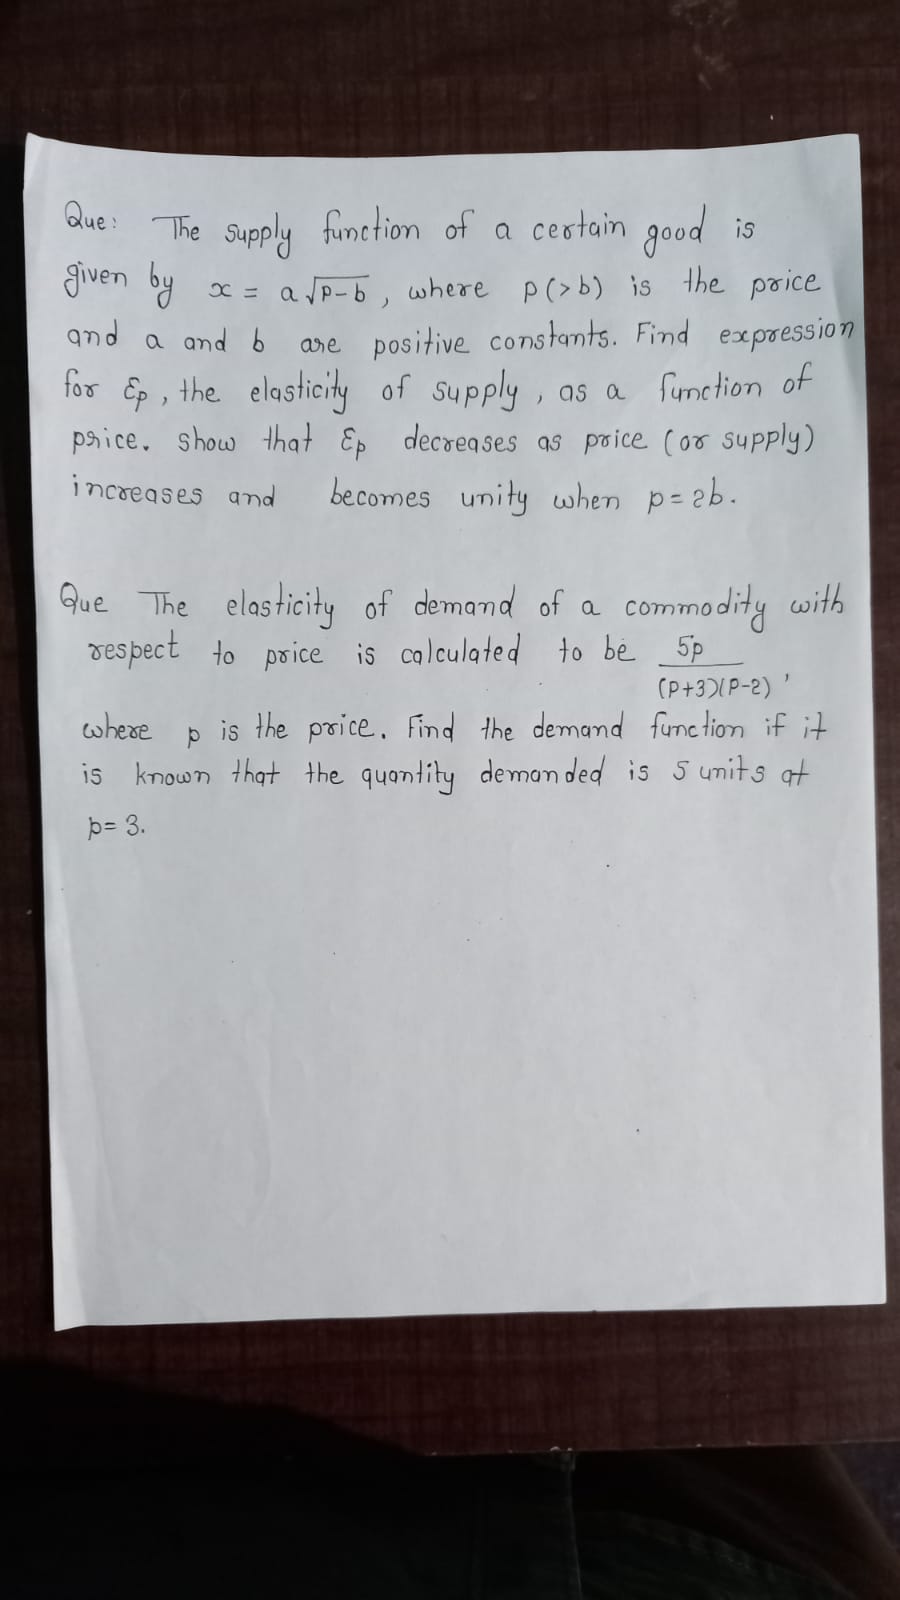 Que: The supply function of a certain good is
given by x = a√p-b, where p(>b) is the price
and a and b are positive constants. Find expression
for Ep, the elasticity of supply, as a function of
price. show that Ep decreases as price (or supply)
increases and becomes unity when p=2b.
Que The elasticity of demand of a commodity with
respect to price is calculated to be 5p
(P+3)(P-2) ,
where p is the price. Find the demand function if it
is known that the quantity demanded is 5 units at
p= 3.